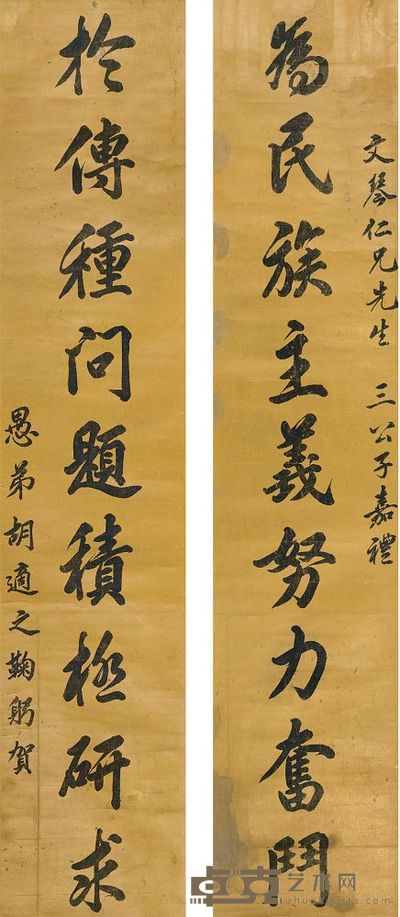 文琴仁兄先生 三公子嘉禮
為民族主義努力奮鬥
於傳種问題積極研求
愚弟胡適之鞠躬賀